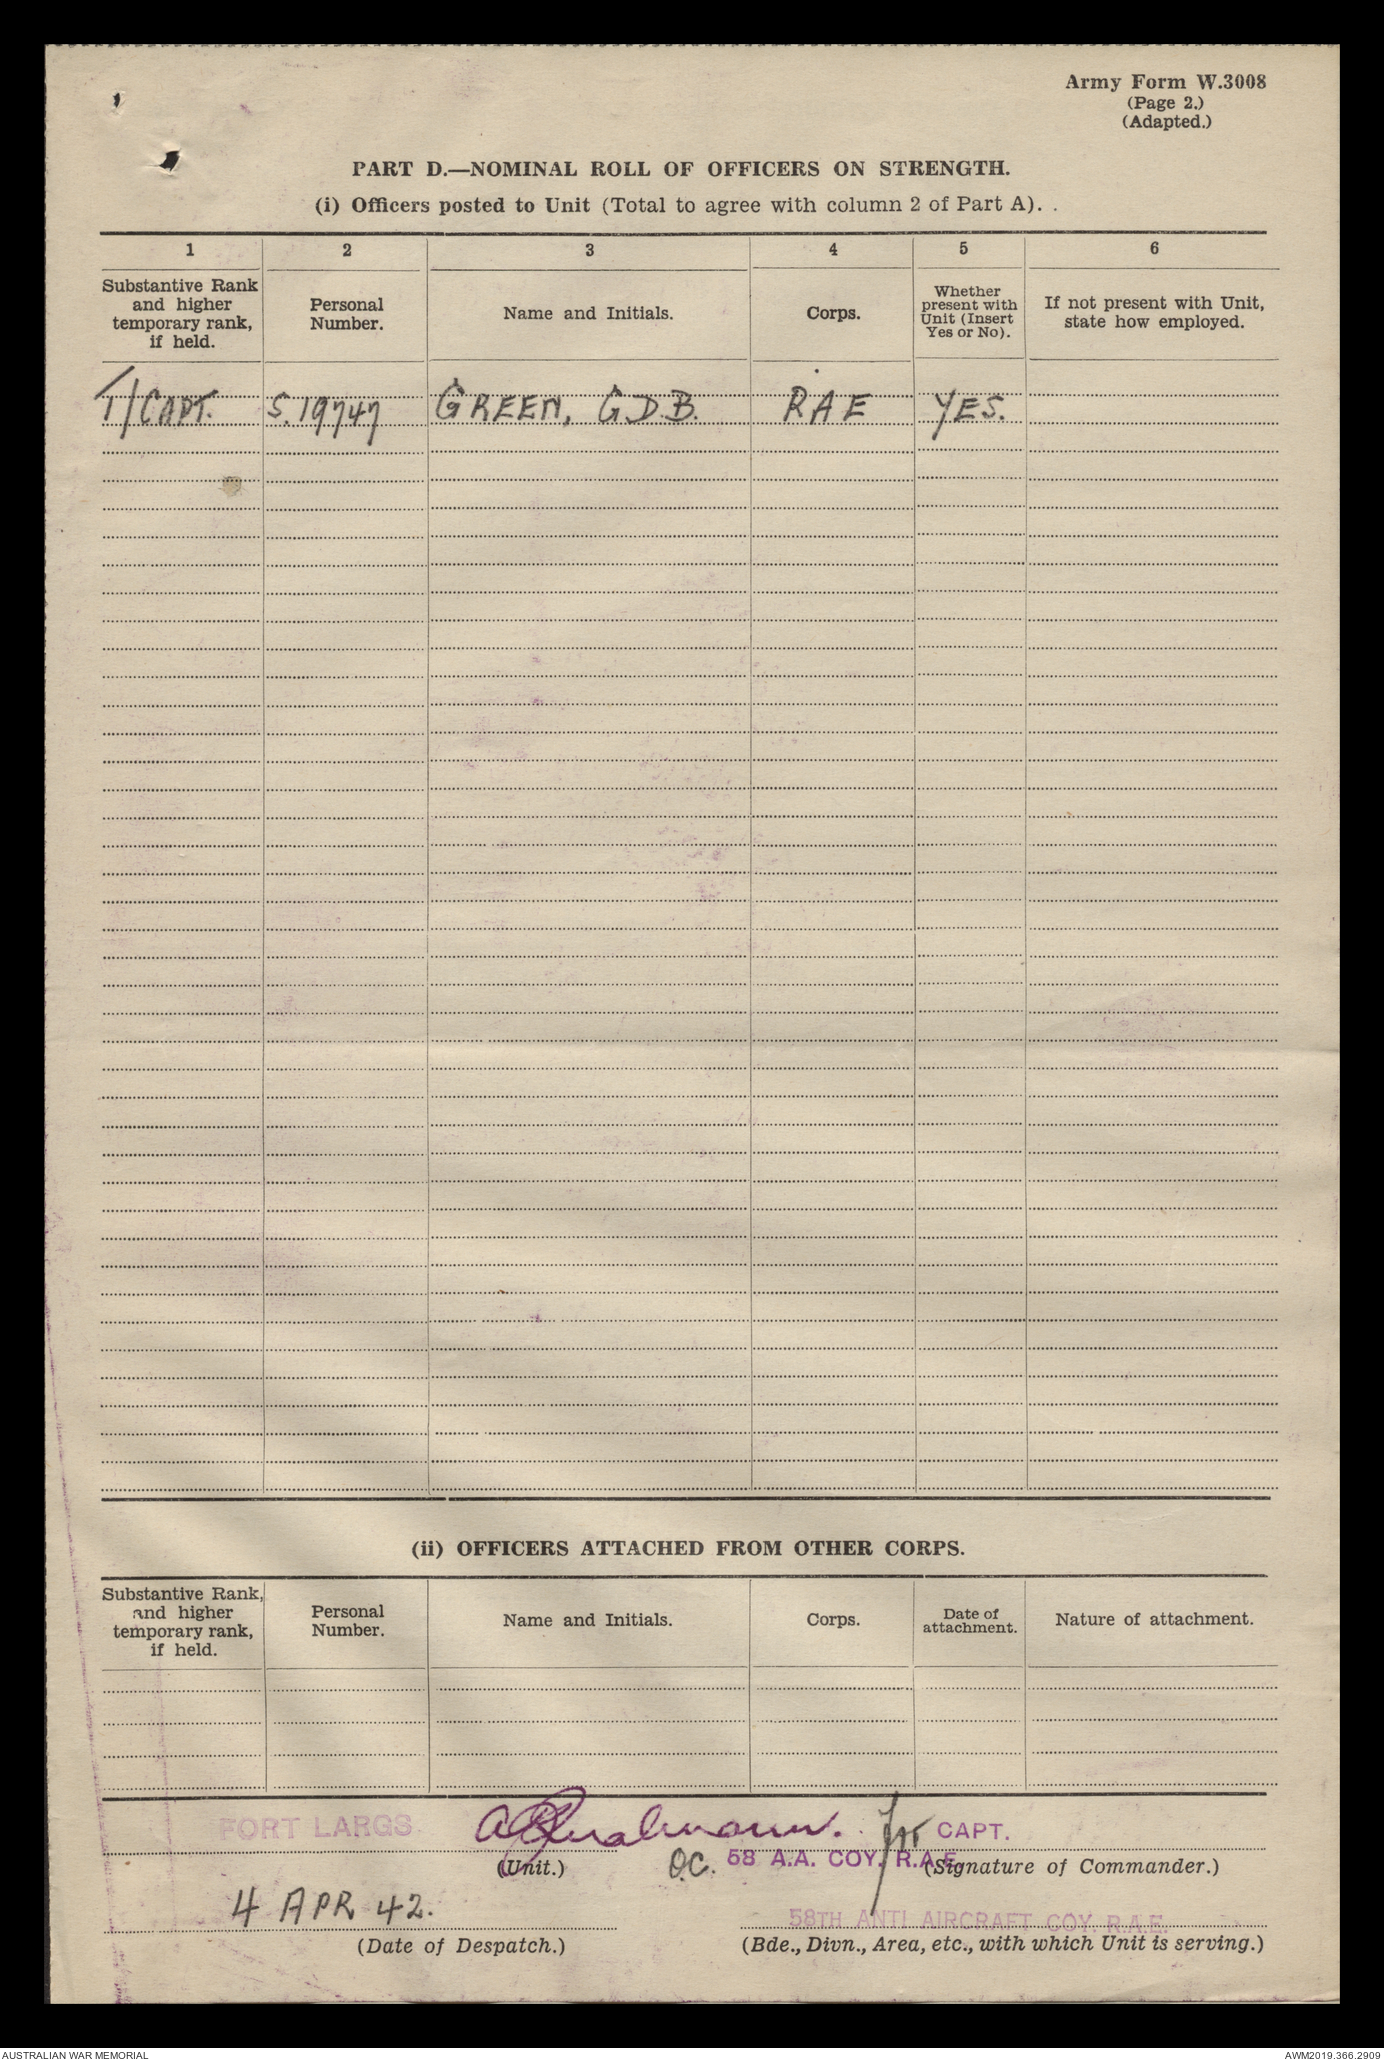 Army Form W.3008
(Page 2.)
(Adapted.)
PART D.—NOMINAL ROLL OF OFFICERS ON STRENGTH.
(i) Officers posted to Unit (Total to agree with column 2 of Part A).
1 2 3 4 5 6
Substantive Rank and higher temporary rank, if held.
Personal Number.
Name and Initials.
Corps.
Whether present with Unit (Insert Yes or No).
If not present with Unit, state how employed.
T/CAPT. S.19747 GREEN, G.D.B. RAE YES.
(ii) OFFICERS ATTACHED FROM OTHER CORPS.
Substantive Rank, and higher temporary rank, if held.
Personal Number.
Name and Initials.
Corps.
Date of attachment.
Nature of attachment.
FORT LARGS for CAPT.
(Unit.) O.C. 58 A.A. COY. R.A.E. (Signature of Commander.)
4 APR 42. 58TH ANTI AIRCRAFT COY. R.A.E.
(Date of Despatch.) (Bde., Divn., Area, etc., with which Unit is serving.)
AUSTRALIAN WAR MEMORIAL AWM2019.366.2909